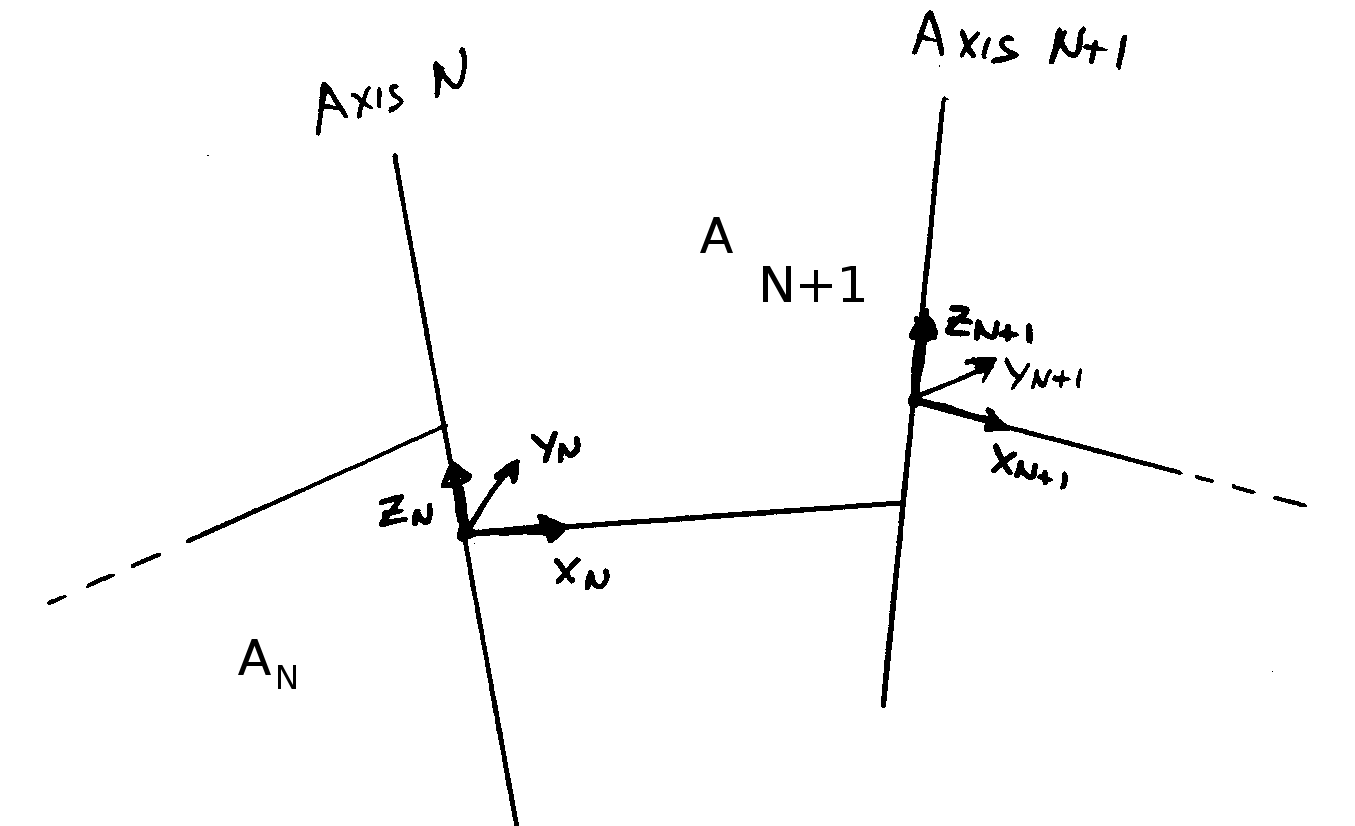 Axis N
Axis N+1
A
N+1
ZN+1
YN+1
XN+1
YN
ZN
XN
AN